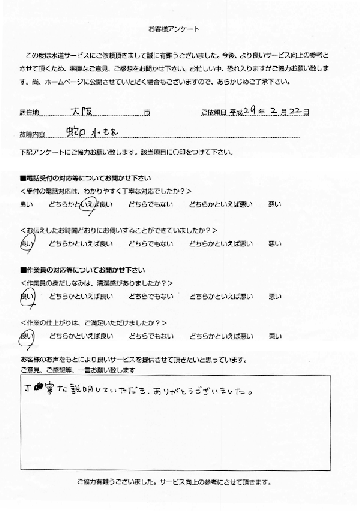 お客様アンケート
この度は水道サービスにご依頼頂きまして誠に有難うございました。今後、より良いサービス向上の参考と
させて頂くため、率直なご意見、ご感想をお聞かせ下さい。お忙しい中、恐れ入りますがご協力お願い致しま
す。尚、ホームページに公開させていただく場合もございますので、あらかじめご了承下さい。
居住地 大阪 市 ご依頼日 平成29年2月22日
故障内容 蛇口水もれ
下記アンケートにご協力お願い致します。該当項目に○印をつけて下さい。
■電話受付の対応等についてお聞かせ下さい
<受付の電話対応は、わかりやすく丁寧な対応でしたか?>
良い どちらかといえば良い どちらでもない どちらかといえば悪い 悪い
<お伝えしたお時間どおりにお伺いすることができていましたか?>
良い どちらかといえば良い どちらでもない どちらかといえば悪い 悪い
■作業員の対応等についてお聞かせ下さい
<作業員の身だしなみは、清潔感がありましたか?>
良い どちらかといえば良い どちらでもない どちらかといえば悪い 悪い
<作業の仕上がりは、ご満足いただけましたか?>
良い どちらかといえば良い どちらでもない どちらかといえば悪い 悪い
お客様のお声をもとにより良いサービスを提供させて頂きたいと思っています。
ご意見、ご感想等、一言お願い致します
寧に説明していただき、ありがとうございました。
ご協力有難うございました。サービス向上の参考にさせて頂きます。